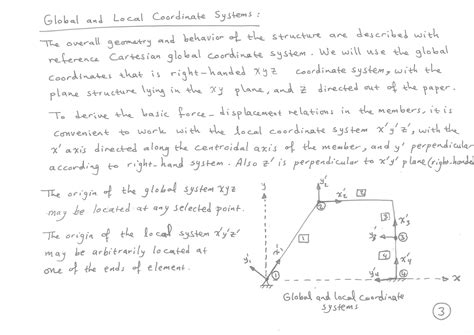 Global and Local Coordinate Systems :
The overall geometry and behavior of the structure are described with
reference Cartesian global coordinate system. We will use the global
coordinates that is right-handed xyz coordinate system, with the
plane structure lying in the xy plane, and z directed out of the paper.
To derive the basic force-displacement relations in the members, it is
convenient to work with the local coordinate system x'y'z', with the
x' axis directed along the centroidal axis of the member, and y' perpendicular
according to right-hand system. Also z' is perpendicular to x'y' plane (right-handed
The origin of the global system xyz
may be located at any selected point.
The origin of the local system x'y'z'
may be arbitrarily located at
one of the ends of element.
y
y'2
x'2
2
2
1
x'3
y'3
3
3
4
x'4
y'1
1
y'4
4
x
Global and local coordinate
systems
3